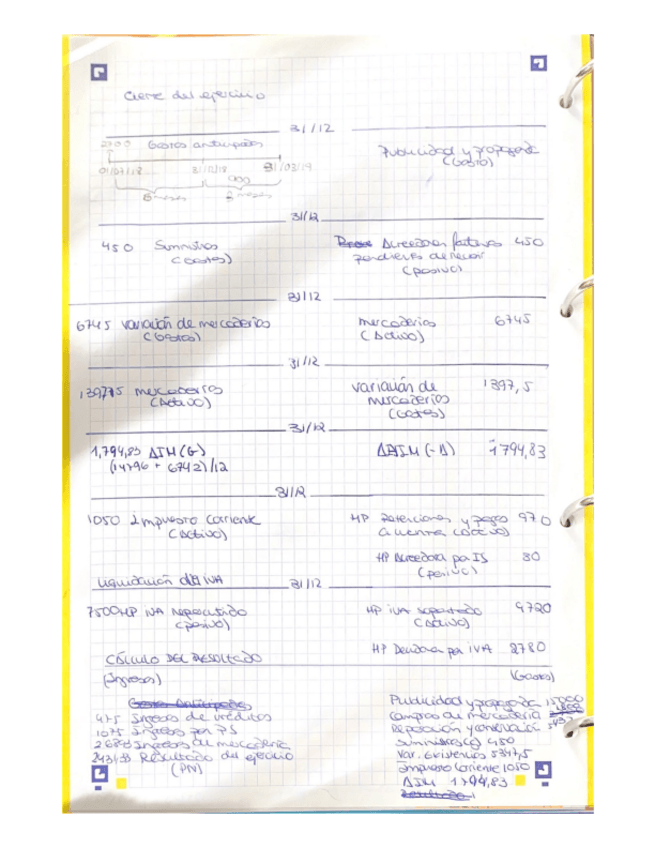 Cierre del ejercicio
31/12
2700 Gastos anticipados
Publicidad y propaganda
(Gasto)
01/07/18 31/12/18 31/03/19
900
6 meses 3 meses
31/12
450 Suministros Acreedores facturas 450
(Gastos) pendientes de recibir
(pasivo)
31/12
6745 variación de mercaderías mercaderías 6745
(Gastos) (Activo)
31/12
mercaderías variación de 1397,5
(Activo) mercaderías
(Gastos)
31/12
1,794,83 AIM (G) AAIM (-A) 1794,83
(14796 + 6742)/12
31/12
1050 Impuesto corriente HP retenciones y pagos 970
(Activo) a cuenta (activo)
HP Acreedora por IS 80
(pasivo)
Liquidación del IVA 31/12
7500 HP IVA repercutido HP IVA soportado 9720
(pasivo) (Activo)
HP Deudora por IVA 2780
CÁLCULO DEL RESULTADO
(Ingresos) (Gastos)
Gastos Anticipados Publicidad y propaganda
475 Ingresos de créditos Compras de mercadería
1075 Ingresos por PS Reparación y conservación
Ingresos de mercadería Suministros (G) 450
Resultado del ejercicio Var. existencias 5347,5
(PN) Impuesto Corriente 1050
AIM 1794,83